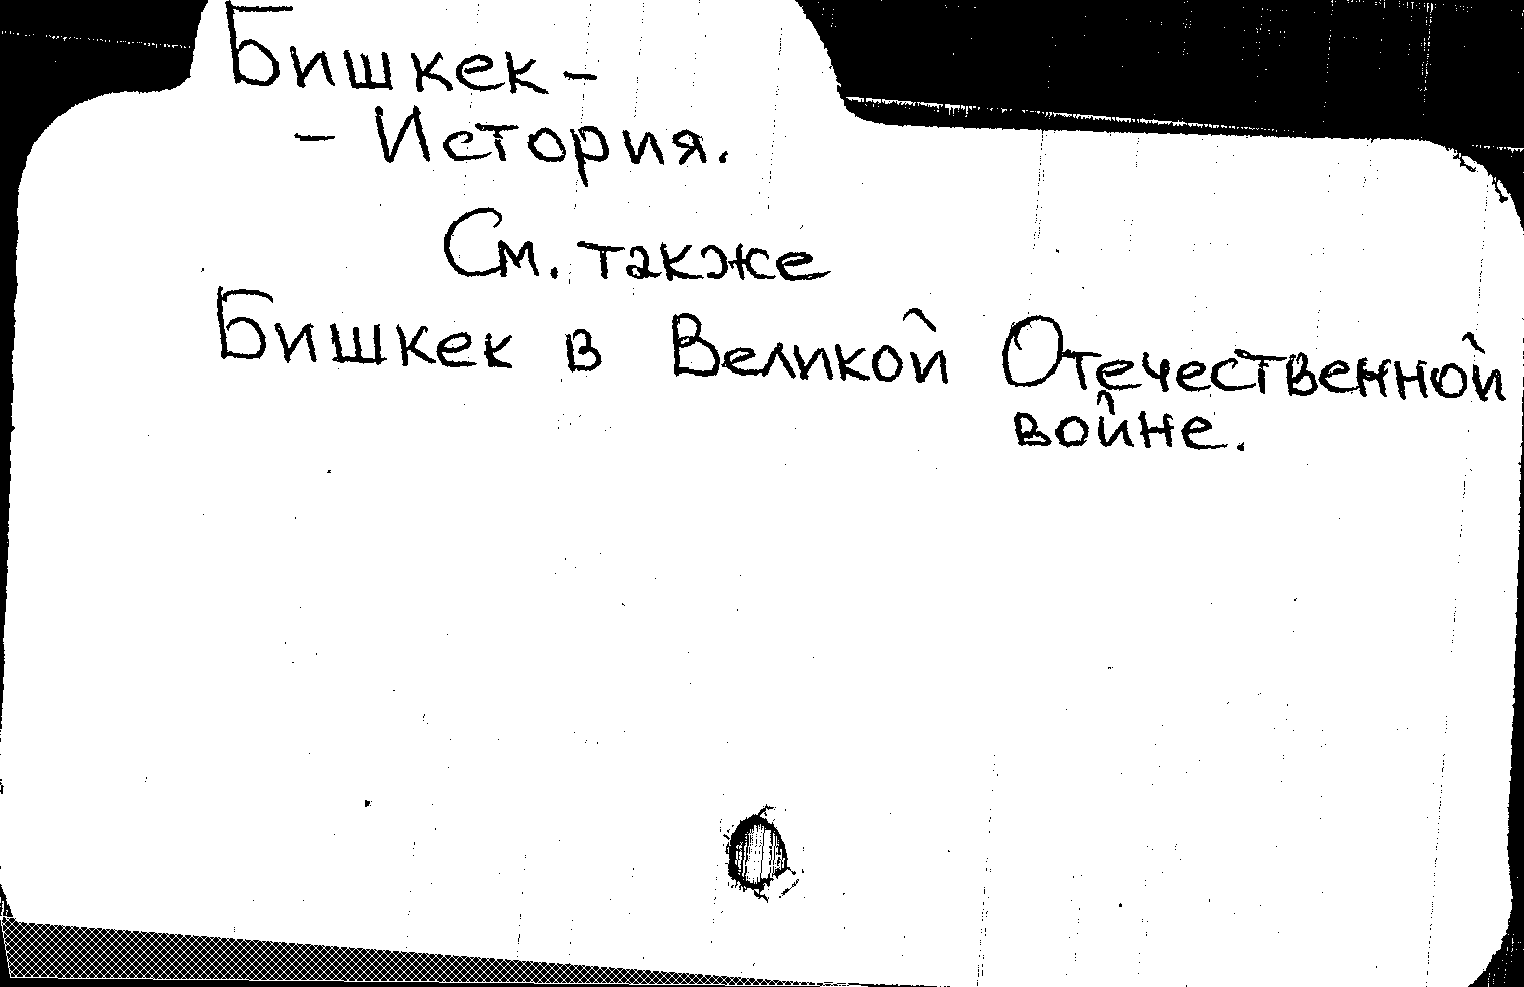 Бишкек –
– История.
См. также
Бишкек в Великой Отечественной
войне.